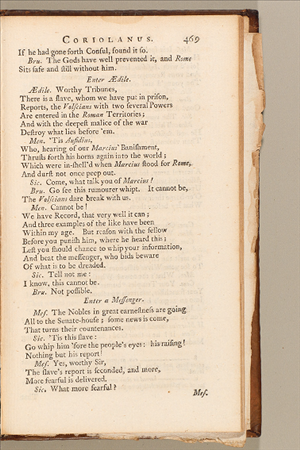 CORIOLANUS. 469
If he had gone forth Conſul, found it ſo.
Bru. The Gods have well prevented it, and Rome
Sits ſafe and ſtill without him.
Enter Ædile.
Ædile. Worthy Tribunes,
There is a ſlave, whom we have put in priſon,
Reports, the Volſcians with two ſeveral Powers
Are entered in the Roman Territories;
And with the deepeſt malice of the war
Deſtroy what lies before 'em.
Men. 'Tis Aufidius,
Who, hearing of our Marcius' Baniſhment,
Thruſts forth his horns again into the world;
Which were in-ſhell'd when Marcius ſtood for Rome,
And durſt not once peep out.
Sic. Come, what talk you of Marcius?
Bru. Go ſee this rumourer whipt. It cannot be,
The Volſcians dare break with us.
Men. Cannot be!
We have Record, that very well it can;
And three examples of the like have been
Within my age. But reaſon with the fellow
Before you puniſh him, where he heard this;
Leſt you ſhould chance to whip your information,
And beat the meſſenger, who bids beware
Of what is to be dreaded.
Sic. Tell not me:
I know, this cannot be.
Bru. Not poſſible.
Enter a Meſſenger.
Meſ. The Nobles in great earneſtneſs are going
All to the Senate-houſe; ſome news is come,
That turns their countenances.
Sic. 'Tis this ſlave:
Go whip him 'fore the people's eyes: his raiſing!
Nothing but his report!
Meſ. Yes, worthy Sir,
The ſlave's report is ſeconded, and more,
More fearful is delivered.
Sic. What more fearful?
Meſ.